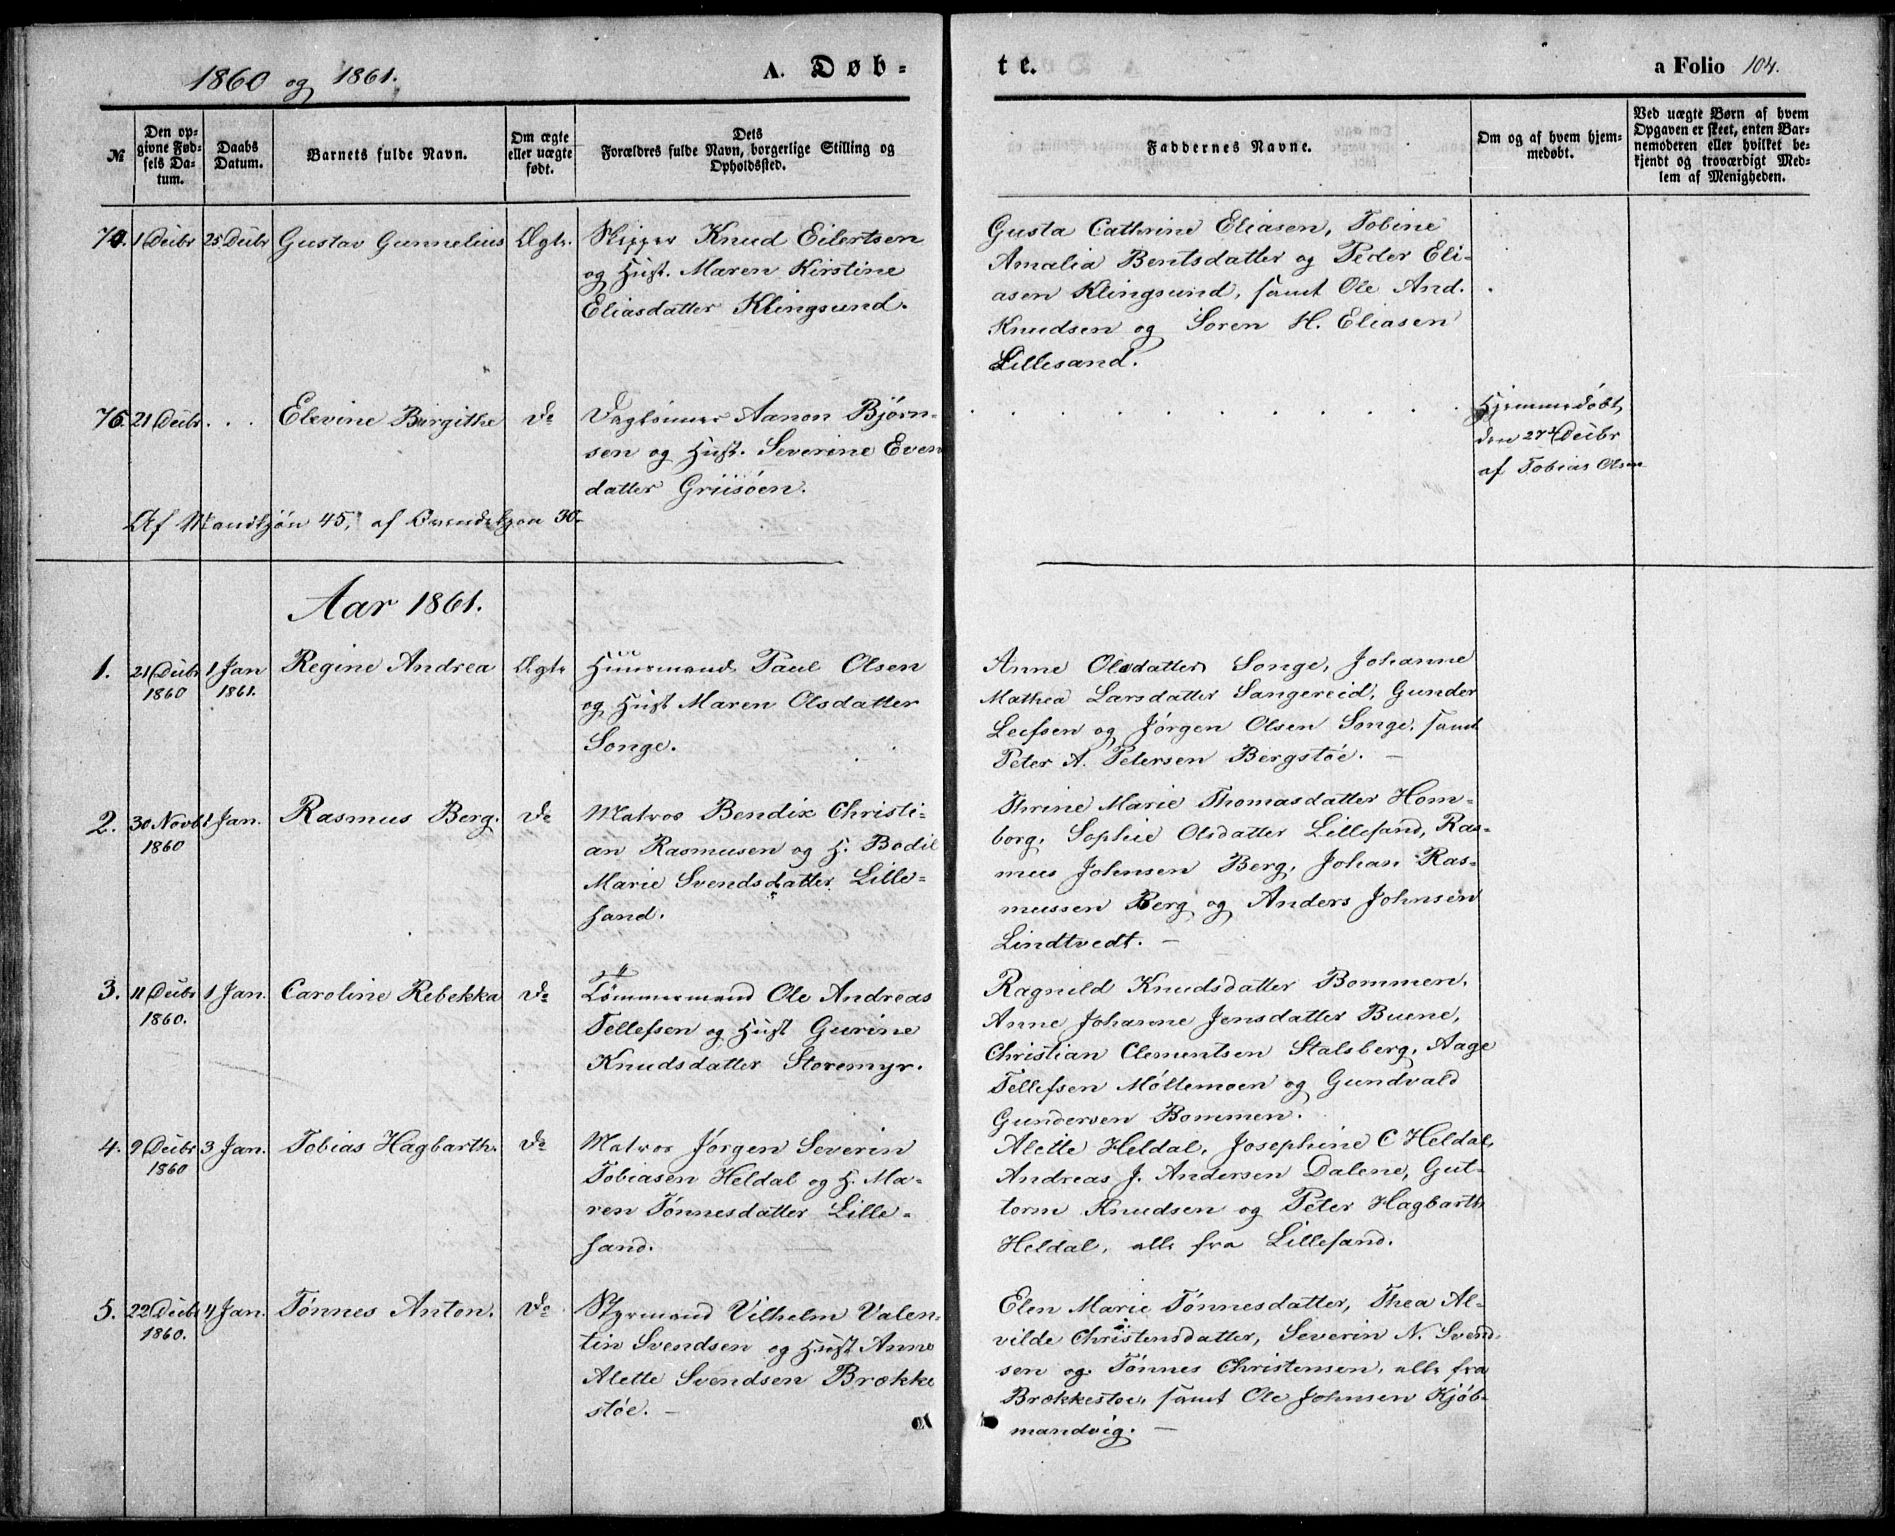 1860 og 1861.
A. Døb-
te.
a Folio 104.
№
Den op-
givne Fød-
sels Da-
tum.
Daabs
Datum.
Barnets fulde Navn.
Om ægte
eller uægte
født.
Dets
Forældres fulde Navn, borgerlige Stilling og
Opholdssted.
Faddernes Navne.
Om og af hvem hjem-
medøbt.
Ved uægte Børn af hvem
Opgaven er skeet, enten Bar-
nemoderen eller hvilket be-
kjendt og troværdigt Med-
lem af Menigheden.
1 Decbr 25 Decbr Gustav Gunnelius Ægte. Skipper Knud Eilertsen
og Hust. Maren Kirstine
Eliasdatter Klingsund.
Gusta Cathrine Eliasen, Tobine
Amalia Bentsdatter og Peder Eli-
asen Klingsund, samt Ole And.
Knudsen og Søren H. Eliasen
Lillesand.
21 Decbr . . . Elevine Birgithe do Dagleier Aanon Bjørn-
sen og Hust. Severine Even
datter Griisöen.
Hjemmedöbt
den 27d Decbr
af Tobias Olsen
Af Mandkjön 45, af Qvindekjøn 30.
Aar 1861.
1. 21 Decbr 1860 1 Jan 1861. Regine Andrea Ægte Huusmand Paul Olsen
og Hust Maren Olsdatter
Songe.
Anne Olsdatter Songe, Johanne
Mathea Larsdatter Sangereid, Gunder
Leefsen og Jørgen Olsen Songe, samt
Peter A. Petersen Bergstöe. —
2. 30 Novb. 1860 1 Jan. Rasmus Berg. do Matros Bendix Christi-
an Rasmusen og H. Bodil
Marie Svendsdatter Lille-
sand.
Thrine Marie Thomasdatter Hom-
borg, Sophie Olsdatter Lillesand, Ras-
mus Johnsen Berg, Johan Ras-
mussen Berg og Anders Johnsen
Lindtvedt. —
3. 11 Decbr 1860. 1 Jan. Caroline Rebekka do Tömmermand Ole Andreas
Tellefsen og Hust Gurine
Knudsdatter Storemyr.
Ragnild Knudsdatter Bommen,
Anne Johanne Jensdatter Buene,
Christian Clementsen Stalsberg, Aage
Tellefsen Möllemoen og Gundvald
Gundersen Bommen.
4. 9 Decbr 1860 3 Jan. Tobias Hagbarth. do Matros Jörgen Severin
Tobiasen Heldal og H. Ma-
ren Tönnesdatter Lille-
sand.
Alette Heldal, Josephine C Heldal,
Andreas J. Andersen Dalene, Gut-
torm Knudsen og Peter Hagbarth
Heldal, alle fra Lillesand.
5. 22 Decbr 1860. 4 Jan. Tönnes Anton. do Styrmand Vilhelm Valen-
tin Svendsen og Hust Anne
Alette Svendsen Brække
stöe. —
Elen Marie Tönnesdatter, Thea Al-
vilde Christensdatter, Severin N. Svend-
sen og Tönnes Christensen, alle fra
Brækkestøe, samt Ole Johnsen Kjöb-
mandvig. —